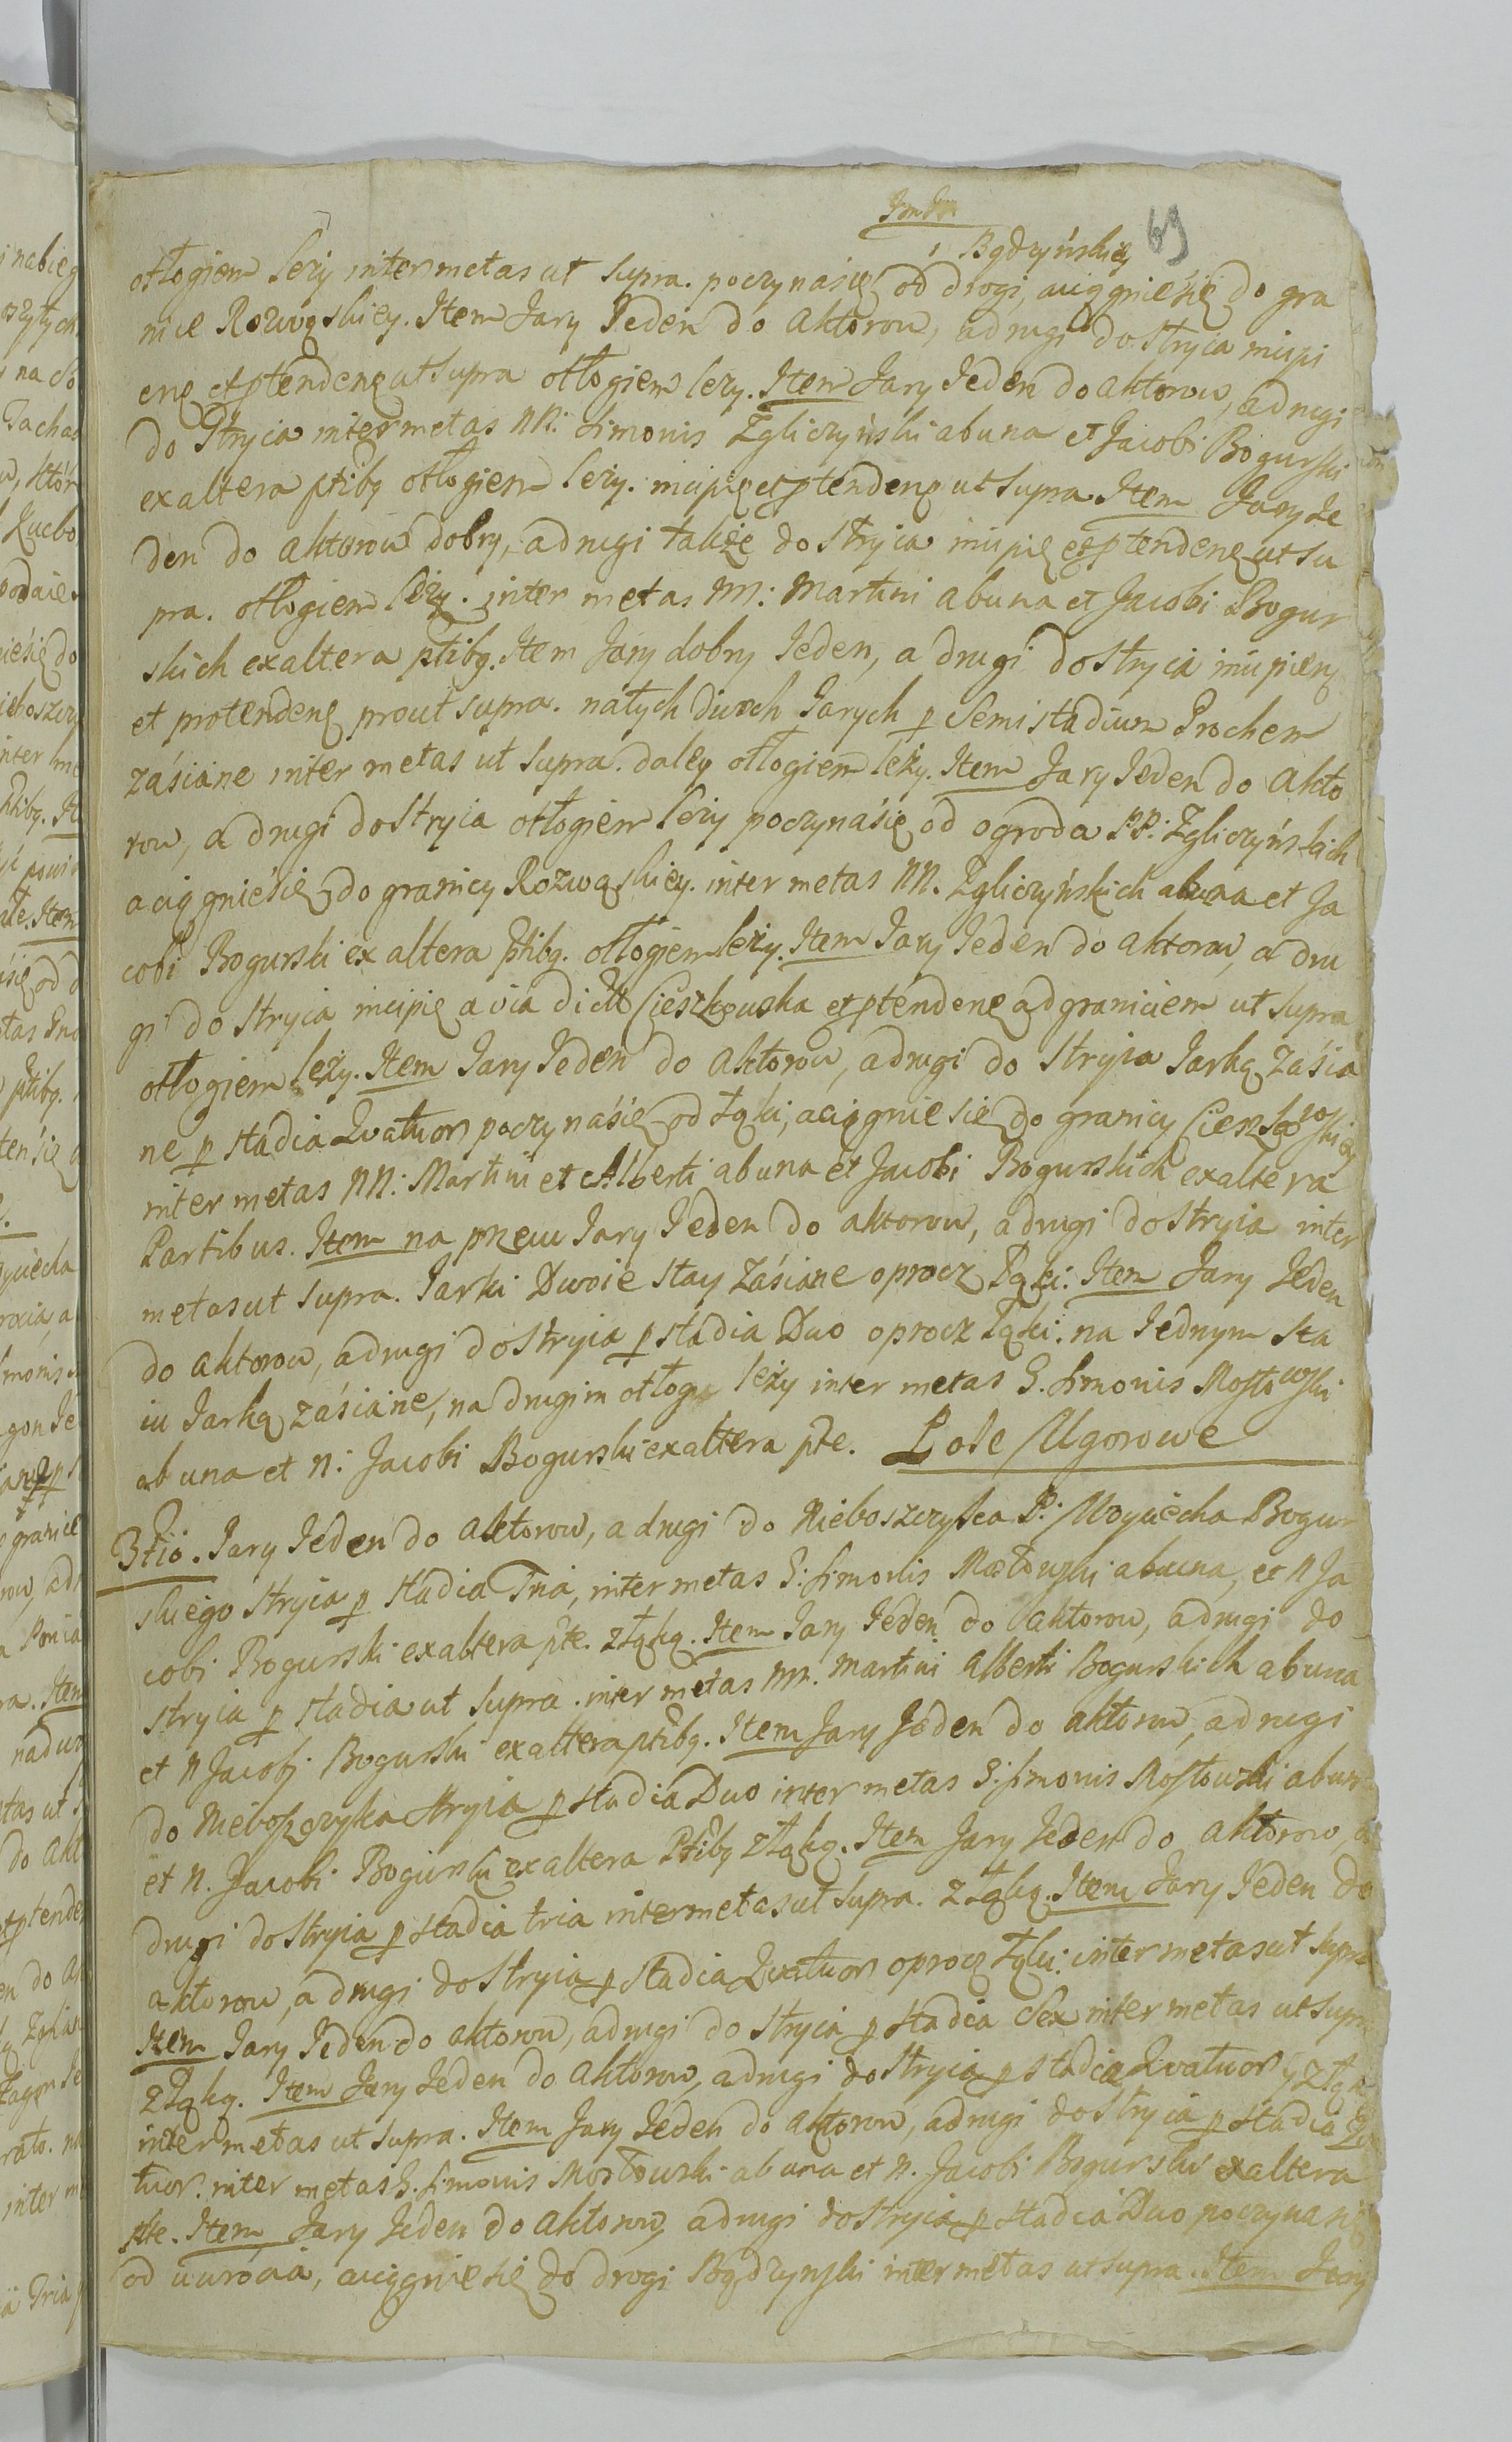 69
Bądzyńskiey
otłogiem leży inter metas ut supra. poczynasię od drogi, aciągnieśię do gra
nice Rozwąskiey. Item Jary Jeden do aktorow, adrugi do stryia incipi
enę et ptendenę ut supra otłogiem leży. Item Jary Jeden do aktorow, adrugi
do Stryia inter metas NN: Simonis Zgliczyński abuna et Jacobi Bogurski
exaltera ptibg otłogiem leży. incipię et ptendenę ut supra. Item Jary Je
den do aktorow dobry, adrugi także do stryia incipię et ptendenę ut su
pra. otłogiem leży. inter metas NN: Martini abuna et Jacobi Bogur
skich exaltera ptibg. Item Jary dobry Jeden, a drugi do stryia incipienę
et protendenę prout supra. natych dwoch Jarych p Semistadium Prochem
záśiane inter metas ut supra. daley otłogiem leży. Item Jary Jeden do akto
row, a drugi do stryia otłogiem leży poczynaśię od ogroda PP: Zgliczyńskich
aciągnieśię do granicy Rozwąskiey. inter metas NN. Zgliczyńskich abuna et Ja
cobi Bogurski exaltera ptibg. otłogiem leży. Item Jary Jeden do aktorow, a dru
gi do stryia incipię a via dicta Cieszkowska et ptendenę ad graniciem ut supra
otłogiem leży. Item Jary Jeden do aktorow, adrugi do stryia Jarką záśia
ne p stadia Quatuor poczynaśię od łąki, aciągnie sie do granicy Cieszkowskiey
inter metas NN: Martini et Alberti abuna et Jacobi Bogurskich exaltera
Partibus. Item na pniewu Jary Jeden do aktorow, adrugi do stryia inter
metas ut supra. Jarki Dwoie stay záśiane oprocz łąki. Item Jary Jeden
do aktorow, adrugi do stryia p stadia Duo oprocz łąki. na Jednym sta
iu Jarką záśiane, na drugim otłogu leży inter metas G. Simonis Mostowski
ab una et N: Jacobi Bogurski exaltera pte. Pole Ugorowe
3tio. Jary Jeden do aktorow, a drugi do Nieboszczyka P: Woyciecha Bogur
skiego stryia p stadia Tria, inter metas G: Simonis Mostowski abuna, et N Ja
cobi Bogurski exaltera pte. z łąką. Item Jary Jeden do aktorow, adrugi do
stryia p stadia ut supra. inter metas NN. Martini Alberti Bogurskich abuna
et N Jacobi Bogurski exaltera ptibg. Item Jary Jeden do aktorow, adrugi
do Nieboszczyka stryia p stadia Duo inter metas G: Simonis Mostowski abuna
et N. Jacobi Bogurski exaltera Ptibg z łąką. Item Jary Jeden do aktorow, a
drugi do stryia p stadia tria inter metas ut supra. z łąką. Item Jary Jeden do
aktorow, a drugi do stryia p stadia Quatuor oprocz łąki. inter metas ut supra
Item Jary Jeden do aktorow, adrugi do stryia p stadia Sex inter metas ut supra
z łąką. Item Jary Jeden do aktorow, adrugi do stryia p stadia Quatuor y z łąk
inter metas ut supra. Item Jary Jeden do aktorow, adrugi do stryia p stadia Qua
tuor. inter metas G. Simonis Mostowski abuna et N. Jacobi Bogurski exaltera
pte. Item Jary Jeden do aktorow, adrugi do stryia p stadia Duo poczynasię
od uwrocia, aciągnie się do drogi Bądzynski inter metas ut supra. Item Jary